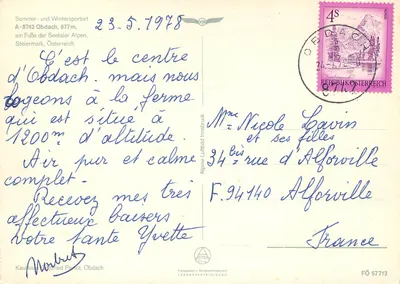 Sommer- und Wintersportort
A-8742 Obdach, 877 m,
am Fuße der Seetaler Alpen,
Steiermark, Österreich
23.5.1978
C'est le centre
d'Obdach. mais nous
logeons à la ferme
qui est situé à
1200m d'altitude.
Air pur et calme
complet.
Recevez mes très
affectueux baisers
votre tante Yvette
Norbert
Obdach
Alpine Luftbild Innsbruck
4s
REPUBLIK ÖSTERREICH
OBDACH
Mme Nicole Cavin
et ses filles
34bis rue d'Alforville
F. 94140 Alforville
France
FÖ 57713